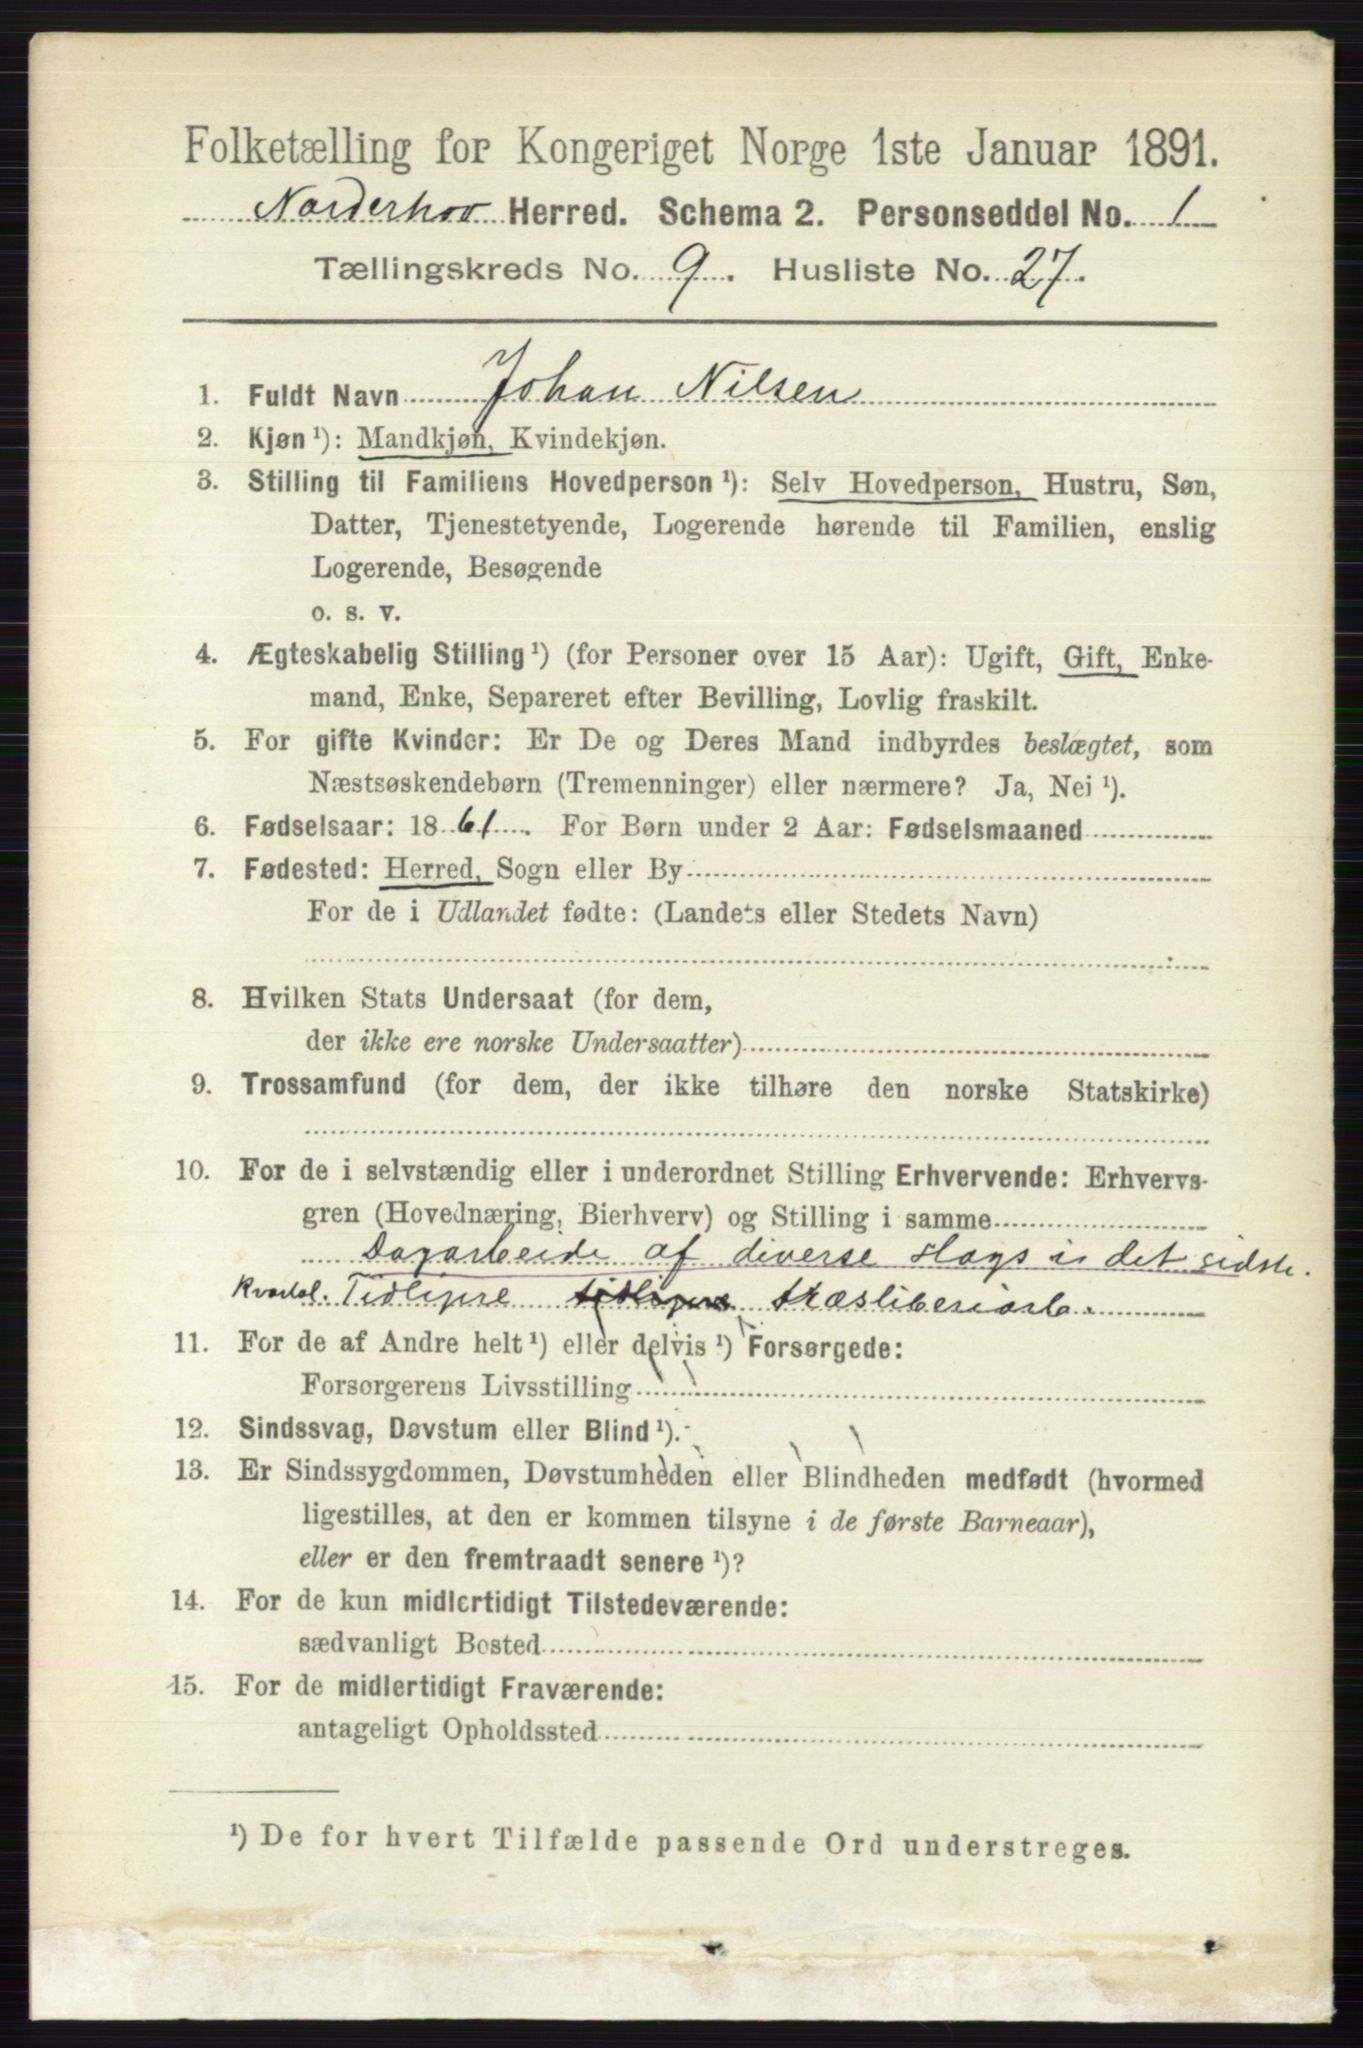 Folketælling for Kongeriget Norge 1ste Januar 1891.
Norderhov Herred. Schema 2. Personseddel No. 1
Tællingskreds No. 9. Husliste No. 27.
1. Fuldt Navn Johan Nilsen
2. Kjøn ¹): Mandkjøn, Kvindekjøn.
3. Stilling til Familiens Hovedperson ¹): Selv Hovedperson, Hustru, Søn,
Datter, Tjenestetyende, Logerende hørende til Familien, enslig
Logerende, Besøgende
o. s. v.
4. Ægteskabelig Stilling ¹) (for Personer over 15 Aar): Ugift, Gift, Enke-
mand, Enke, Separeret efter Bevilling, Lovlig fraskilt.
5. For gifte Kvinder: Er De og Deres Mand indbyrdes beslægtet, som
Næstsøskendebørn (Tremenninger) eller nærmere? Ja, Nei ¹).
6. Fødselsaar: 1861. For Børn under 2 Aar: Fødselsmaaned
7. Fødested: Herred, Sogn eller By
For de i Udlandet fødte: (Landets eller Stedets Navn)
8. Hvilken Stats Undersaat (for dem,
der ikke ere norske Undersaatter)
9. Trossamfund (for dem, der ikke tilhøre den norske Statskirke)
10. For de i selvstændig eller i underordnet Stilling Erhvervende: Erhvervs-
gren (Hovednæring, Bierhverv) og Stilling i samme
Dagarbeide af diverse slags i det sidste.
Kvartal. Tidligere tidligere træsliberiarb.
11. For de af Andre helt ¹) eller delvis ¹) Forsørgede:
Forsørgerens Livsstilling
12. Sindssvag, Døvstum eller Blind ¹).
13. Er Sindssygdommen, Døvstumheden eller Blindheden medfødt (hvormed
ligestilles, at den er kommen tilsyne i de første Barneaar),
eller er den fremtraadt senere ¹)?
14. For de kun midlertidigt Tilstedeværende:
sædvanligt Bosted
15. For de midlertidigt Fraværende:
antageligt Opholdssted
¹) De for hvert Tilfælde passende Ord understreges.